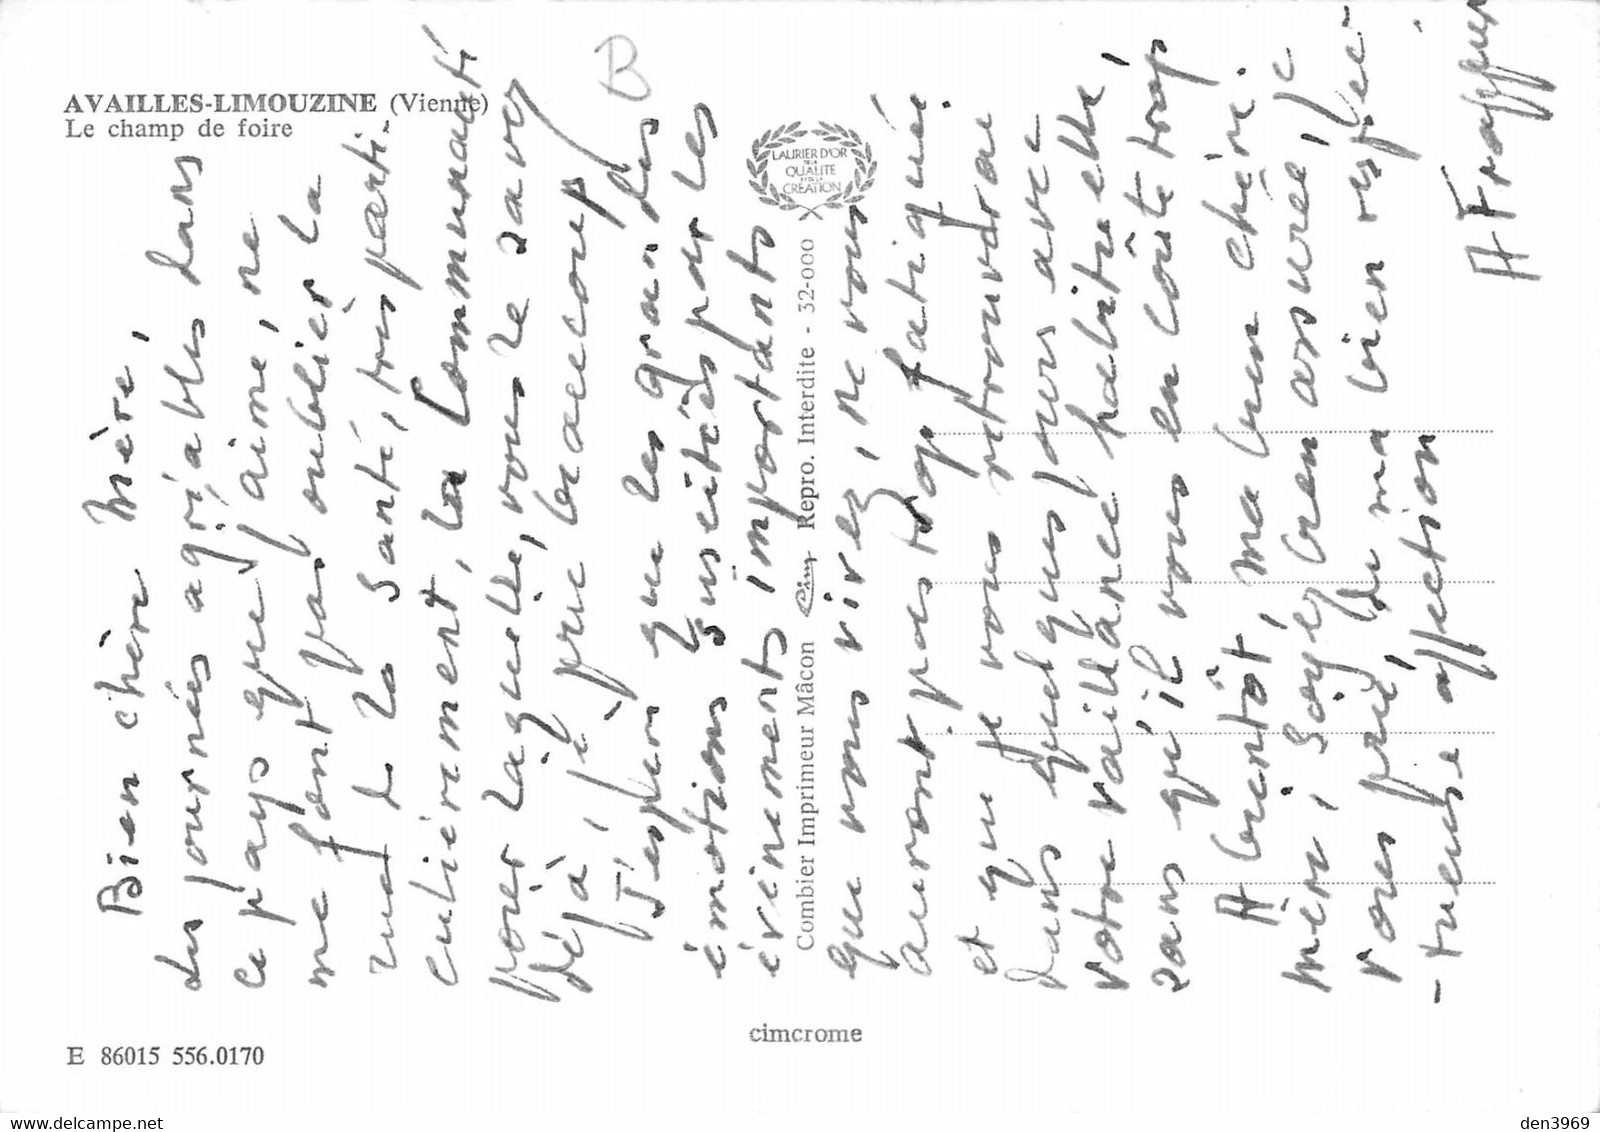 AVAILLES-LIMOUZINE (Vienne)
Le champ de foire
B
LAURIER D'OR
DE LA
QUALITE
ET DE LA
CREATION
Bien chère Mère,
Les journées agréables dans
ce pays que j'aime, ne
me font pas oublier la
rue de la Santé, très parti-
culièrement, la Communauté
pour laquelle, vous le savez
déjà, je prie beaucoup
J'espère que les grandes
émotions suscitées par les
évènements importants
que vous vivez, ne vous
auront pas trop fatiguée
et que je vous retrouverai
dans quelques jours avec
votre vaillance habituelle,
sans qu'il vous en coûte trop
A bientôt, ma bien chère
Mère, Soyez bien assurée, je
vous prie, de ma bien respec-
-tueuse affection
Combier Imprimeur Mâcon Cim Repro. Interdite - 32-000
cimcrome
E 86015 556.0170
den3969